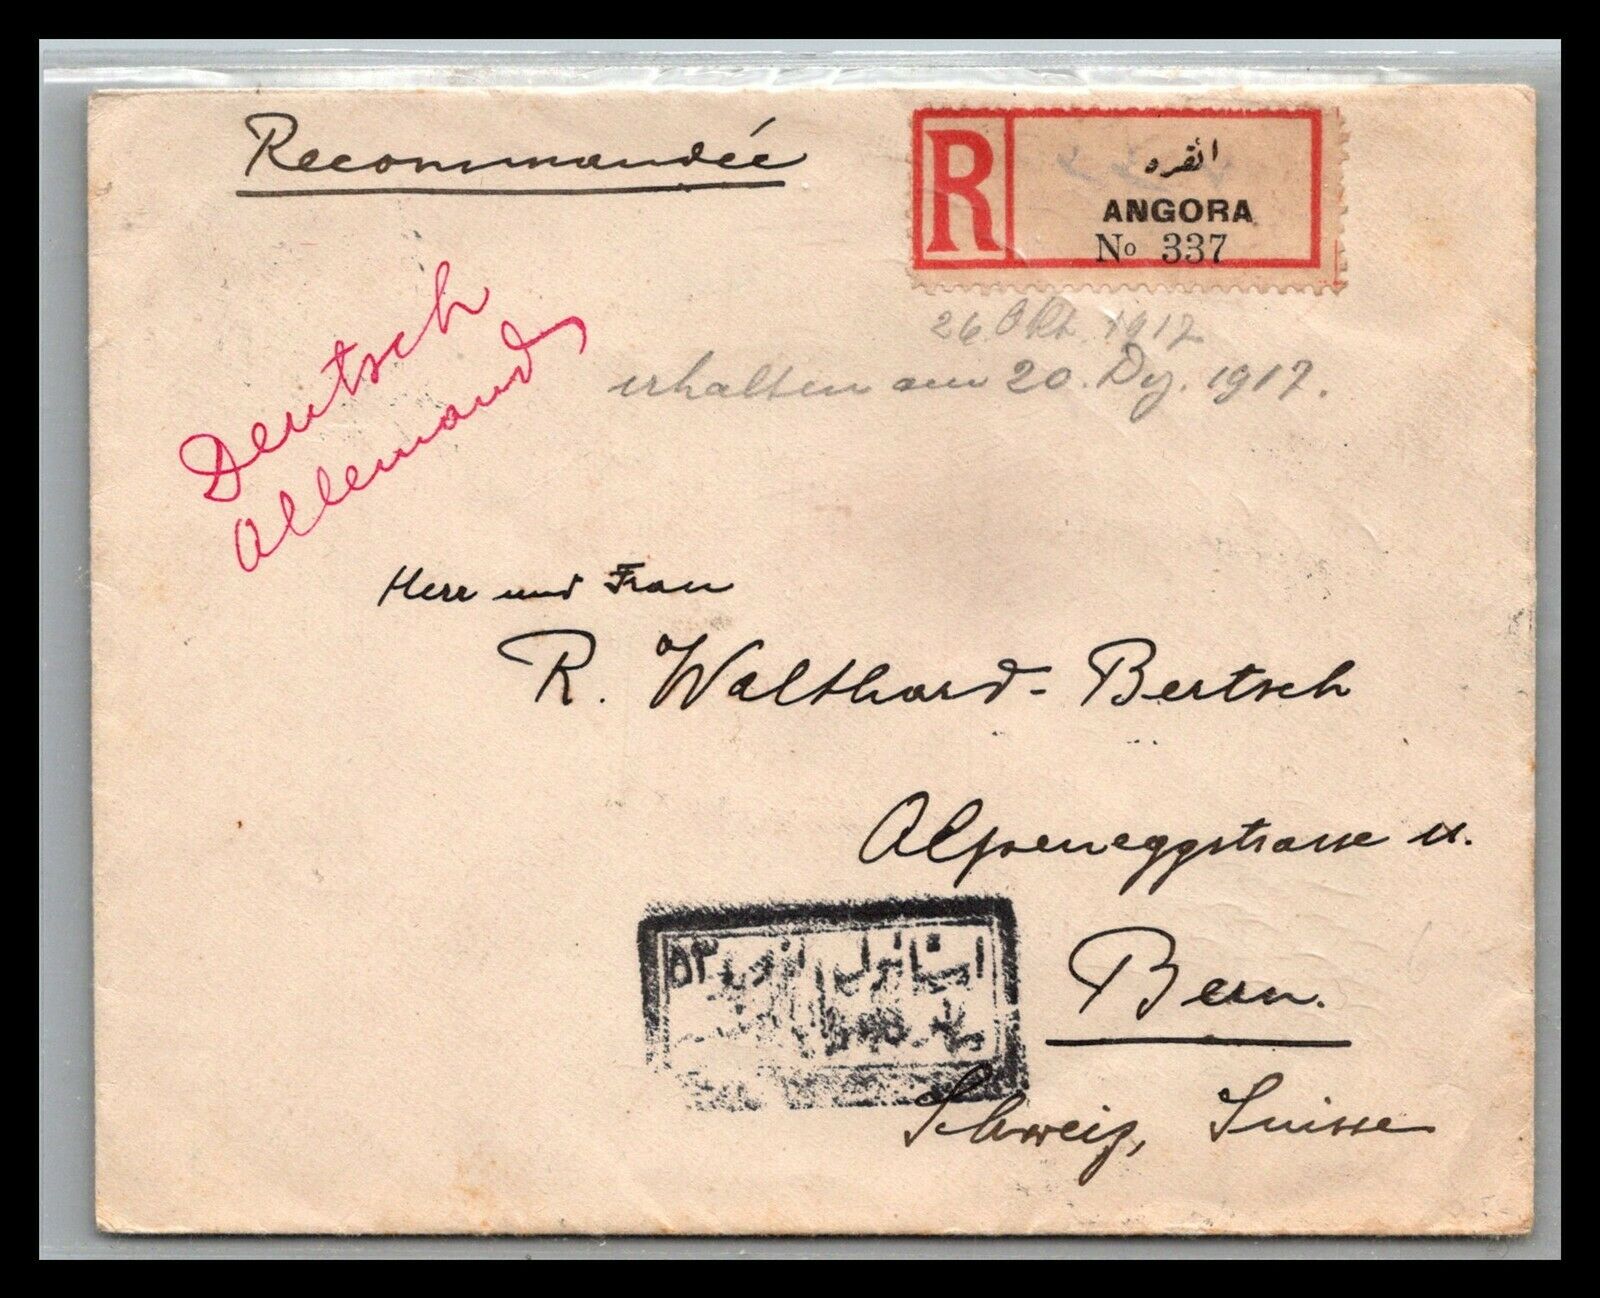 Recommandée
R
انقره
ANGORA
No 337
26. Okt. 1917
erhalten am 20. Dez. 1917.
Deutsch
Allemand
Herr und Frau
R. Walthard-Bertsch
Alpeneggstrasse
Bern.
Schweiz, Suisse
استانبول ٥٣